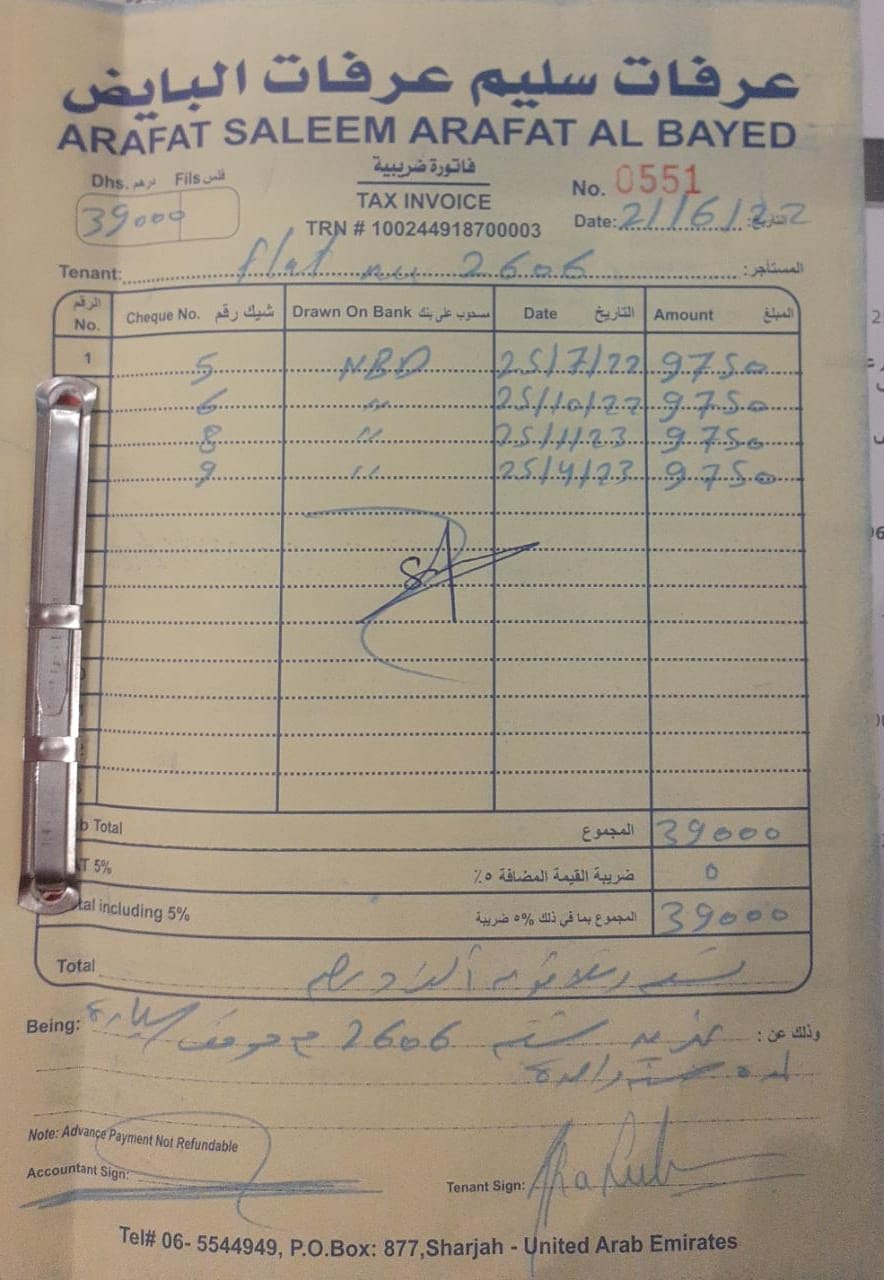 عرفات سليم عرفات البايض
ARAFAT SALEEM ARAFAT AL BAYED
Dhs. درهم Fils فلس
39000
فاتورة ضريبية
TAX INVOICE
TRN # 100244918700003
No. 0551
Date: 21/6/22 التاريخ:
Tenant: flat no 2606 المستأجر:
الرقم No. Cheque No. شيك رقم Drawn On Bank مسحوب على بنك Date التاريخ Amount المبلغ
1 5 NBD 25/7/22 9750
6 〃 25/10/22 9750
8 〃 25/1/23 9750
9 〃 25/4/23 9750
b Total المجموع 39000
T 5% ضريبة القيمة المضافة ٥٪ 0
tal including 5% المجموع بما في ذلك 5% ضريبة 39000
Total تسعة وثلاثون ألف درهم
Being: وذلك عن: شقة 2606 مع موقف سيارة
لمدة سنة واحدة
Note: Advance Payment Not Refundable
Accountant Sign:
Tenant Sign:
Tel# 06- 5544949, P.O.Box: 877,Sharjah - United Arab Emirates